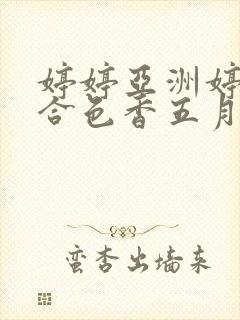 婷婷亞洲婷
合色香五月
蛮杏出墙来